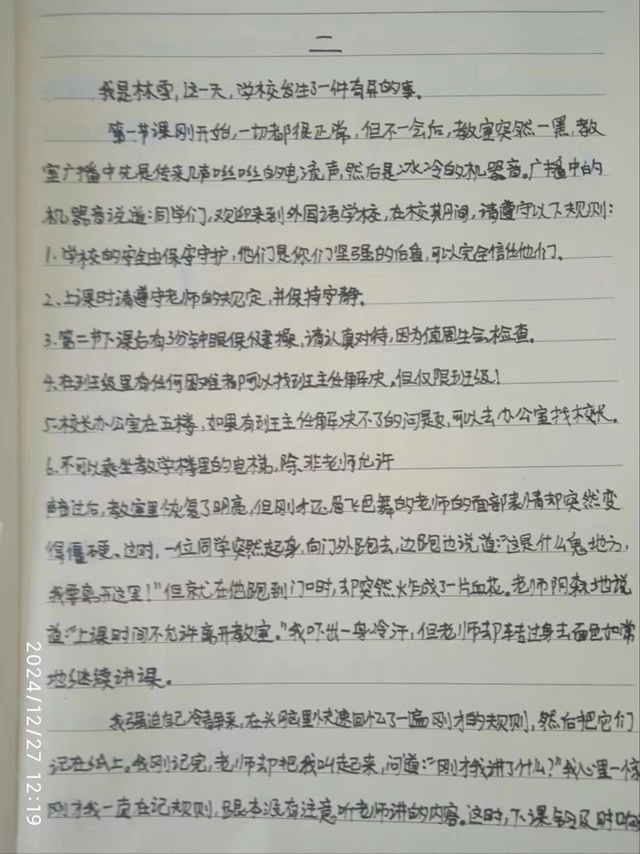 二
我是林雪,这一天,学校发生了一件奇异的事。
第一节课刚开始,一切都很正常,但不一会后,教室突然一黑,教
室广播中先是传来几声呲呲的电流声,然后是冰冷的机器音。广播中的
机器音说道:同学们,欢迎来到外国语学校,在校其间,请遵守以下规则:
1.学校的安全由保安守护,他们是你们坚强的后盾,可以完全信任他们。
2.上课时请遵守老师的规定,并保持安静。
3.第二节下课后有3分钟眼保健操,请认真对待,因为值周生会检查。
4.在班级里有任何困难都可以找班主任解决。但仅限班级!
5.校长办公室在五楼,如果有班主任解决不了的问题,可以去办公室找校长。
6.不可以乘坐教学楼里的电梯,除非老师允许
声音过后,教室里恢复了明亮,但刚才还眉飞色舞的老师的面部表情却突然变
得僵硬。这时,一位同学突然起身,向门外跑去,边跑边说道:"这是什么鬼地方,
我要离开这里!"但就在他跑到门口时,却突然炸成了一片血花。老师阴森地说
道:"上课时间不允许离开教室。"我吓出一身冷汗,但老师却转过身去面色如常
地继续讲课。
我强迫自己冷静下来,在头脑里快速回忆了一遍刚才的规则,然后把它们
记在纸上。我刚记完,老师却把我叫起来,问道:"刚才我讲了什么?"我心里一惊
刚才我一直在记规则,跟本没有注意听老师讲的内容。这时,下课铃及时响
2024/12/27 12:19